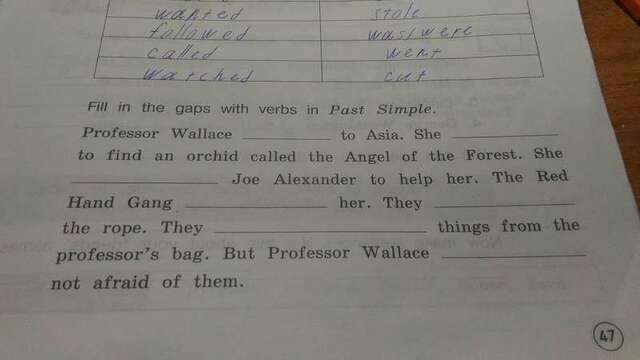 wanted stole
followed was/were
called went
watched cut
Fill in the gaps with verbs in Past Simple.
Professor Wallace ____________ to Asia. She ____________
to find an orchid called the Angel of the Forest. She
____________ Joe Alexander to help her. The Red
Hand Gang ____________ her. They ____________
the rope. They ____________ things from the
professor's bag. But Professor Wallace ____________
not afraid of them.
47